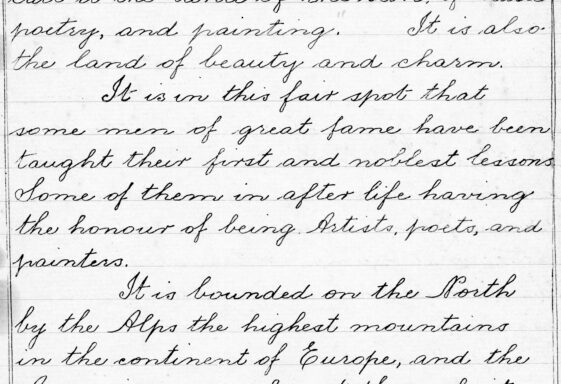 is the land of
poetry, and painting. It is also
the land of beauty and charm.
It is in this fair spot that
some men of great fame have been
taught their first and noblest lessons
Some of them in after life having
the honour of being Artists, poets, and
painters.
It is bounded on the North
by the Alps the highest mountains
in the continent of Europe, and the